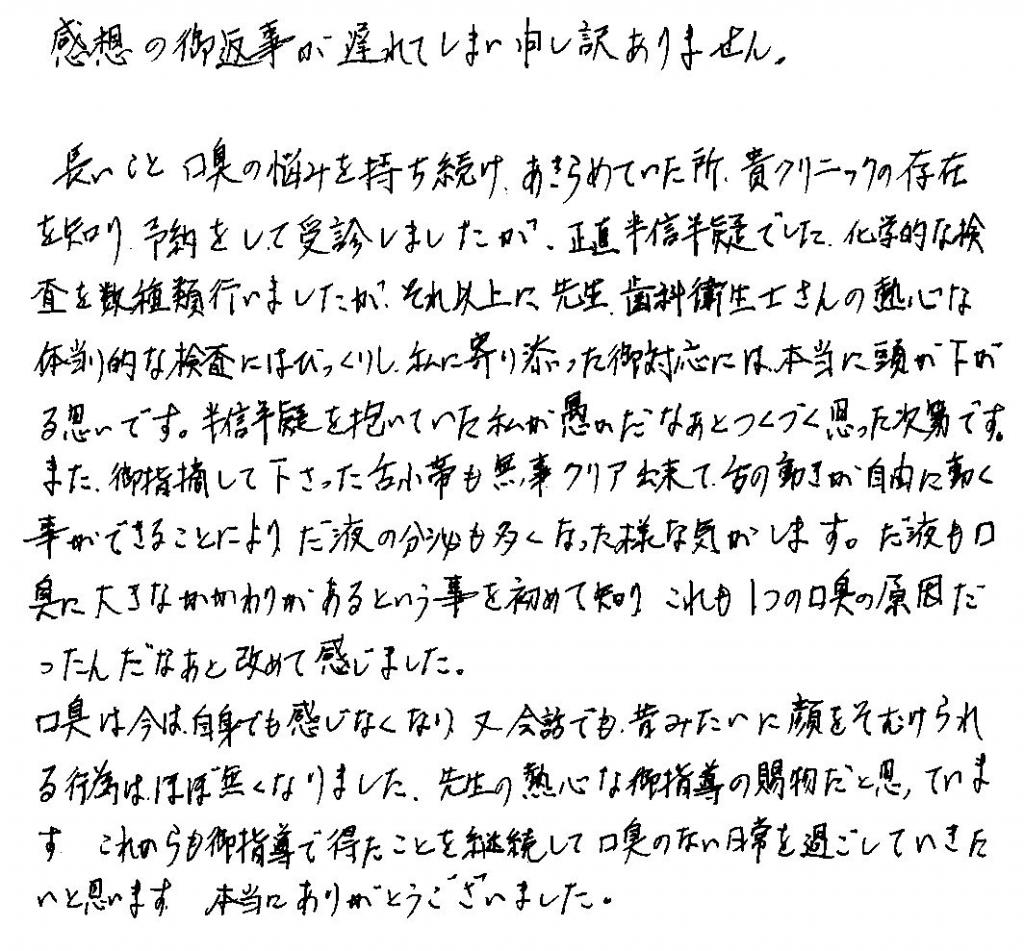 感想の御返事が遅れてしまい申し訳ありません。
長いこと口臭の悩みを持ち続け、あきらめていた所、貴クリニックの存在
を知り、予約をして受診しましたが、正直半信半疑でした、化学的な検
査を数種類行いましたが、それ以上に、先生、歯科衛生士さんの熱心な
体当り的な検査にはびっくりし、私に寄り添った御対応には、本当に頭が下が
る思いです。半信半疑を抱いていた私が愚かだなあとつくづく思った次第です。
また、御指摘して下さった舌小帯も無事クリア出来て、舌の動きが自由に動く
事ができることにより、だ液の分泌も多くなった様な気がします。だ液も口
臭に大きなかかわりがあるという事を初めて知り、これも1つの口臭の原因だ
ったんだなあと改めて感じました。
口臭は今は、自身でも感じなくなり、又、会話でも、昔みたいに顔をそむけられ
る行為は、ほぼ無くなりました、先生の熱心な御指導の賜物だと思っていま
す これからも御指導で得たことを継続して口臭のない日常を過ごしていきた
いと思います 本当にありがとうございました。